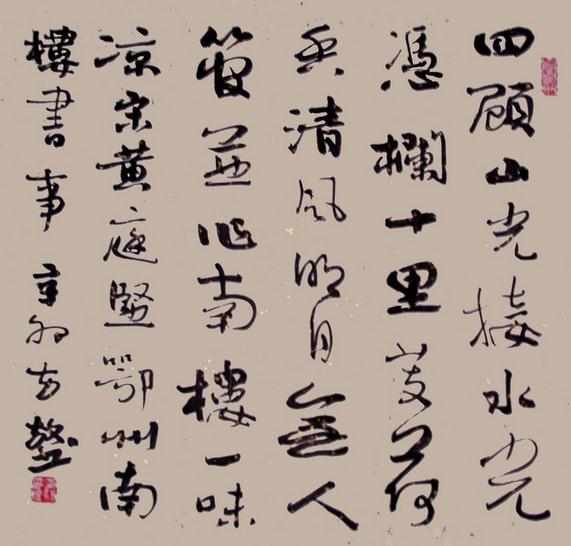 四顧山光接水光
憑欄十里芰荷
香清風明月無人
管並作南樓一味
涼宋黃庭堅鄂州南
樓書事 辛卯方